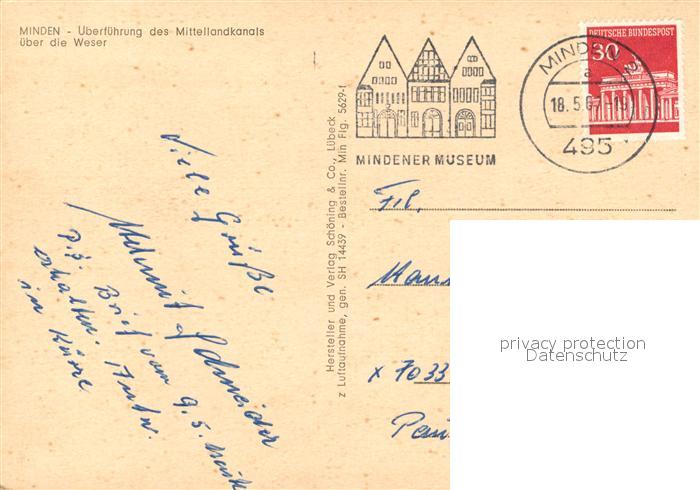 MINDEN - Überführung des Mittellandkanals
über die Weser
Hersteller und Verlag Schöning & Co., Lübeck
z Luftaufnahme, gen. SH 14439 - Bestellnr. Min Flg. 5629-1
MINDENER MUSEUM
DEUTSCHE BUNDESPOST
30
MINDEN
a
18.5.67-19
495
Viele Grüße
Helmut Schneider
P.S. Brief vom 9.5.
erhalten. Antw.
in Kürze
Frl.
x 7033
privacy protection
Datenschutz